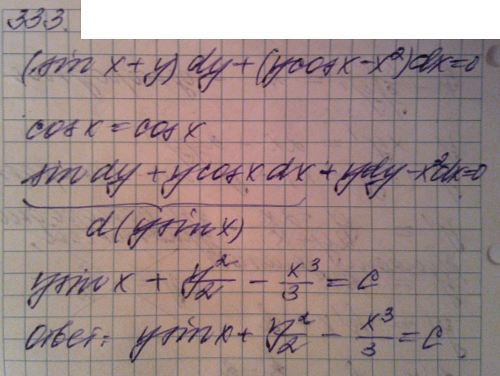 333.
(sin x + y) dy + (y cos x - x²) dx = 0
cos x = cos x
sin dy + y cos x dx + y dy - x² dx = 0
d(y sin x)
y sin x + y²/2 - x³/3 = C
Ответ: y sin x + y²/2 - x³/3 = C